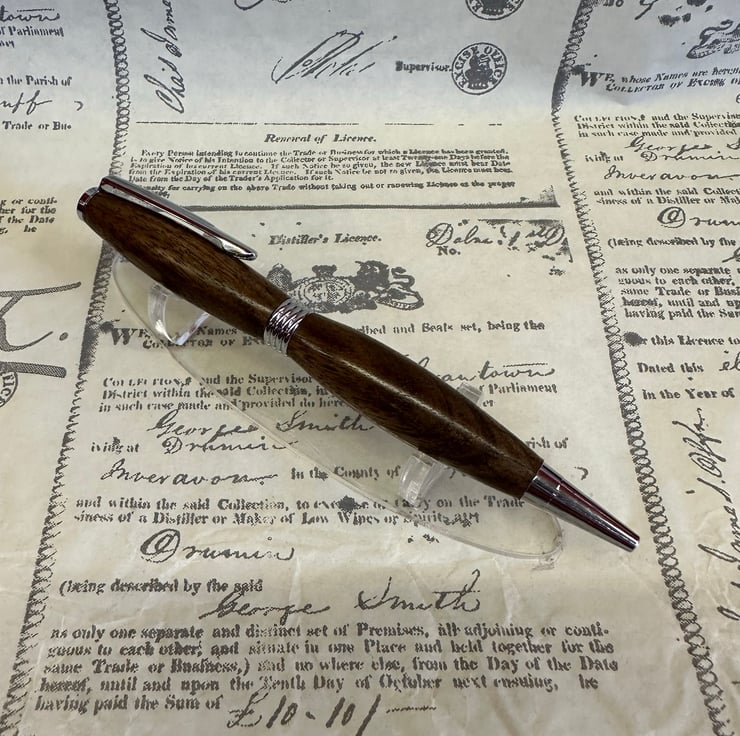 town
of Parliament
in the Parish of
Trade or Bu-
Supervisor.
EXCISE OFFICE
Renewal of Licence.
Every Person intending to continue the Trade or Business for which a Licence has been granted,
is to give Notice of his Intention to the Collector or Supervisor at least Twenty-one Days before the
Expiration of his current Licence. If such Notice be so given, the new Licence must bear Date
from the Expiration of his current Licence. If such Notice be not so given, the Licence must bear
Date from the Day of the Trader's Application for it.
for carrying on the above Trade without taking out or renewing Licence as the proper
Distiller's Licence.
No.
WE, Names
COLLECTOR OF EX
bed and Seals set, being the
COLLECTION, and the Supervisor
town
District within the said Collection, in
Parliament
in such case made and provided do here
George Smith
iving at Drumin
rish of
Inveravon in the County of
and within the said Collection, to
on the Trade
-siness of a Distiller or Maker of Low Wines or Spirits, at
Drumin
(being described by the said
George Smith
as only one separate and distinct set of Premises, all adjoining or conti-
guous to each other, and situate in one Place and held together for the
same Trade or Business,) and no where else, from the Day of the Date
hereof, until and upon the Tenth Day of October next ensuing, he
having paid the Sum of £10-10/
WE, whose Names are hereun
COLLECTOR OF EXCISE OF
COLLECTION, and the Supervis
District within the said Colle
in such case made and provided
George S
iving at Drumin
Inveravon
and within the said Collec
-siness of a Distiller or Mak
Drum
(being described by the
as only one separate
guous to each other,
same Trade or Bus
hereof, until and up
having paid the Su
for this Licence to
Dated this
in the Year of